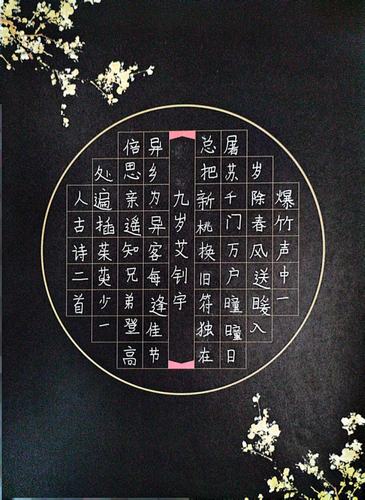 爆竹声中一
岁除春风送暖入
屠苏千门万户瞳瞳日
总把新桃换旧符独在
九岁艾钊宇
异乡为异客每逢佳节
倍思亲遥知兄弟登高
处遍插茱萸少一
人古诗二首